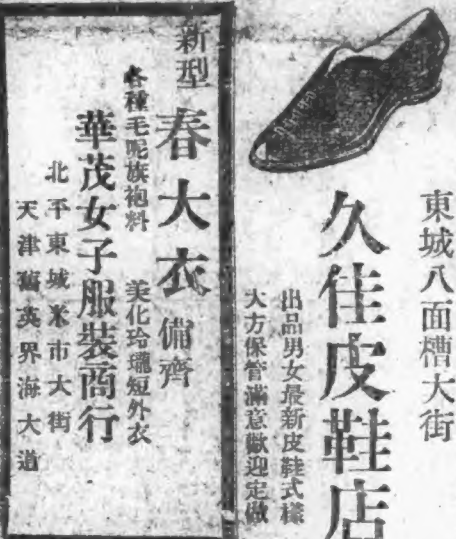 東城八面槽大街
久佳皮鞋店
出品男女最新皮鞋式樣
大方保管滿意歡迎定做
新型
春大衣
備齊
各種毛呢旗袍料
美化玲瓏短外衣
華茂女子服裝商行
北平東城米市大街
天津舊英界海大道